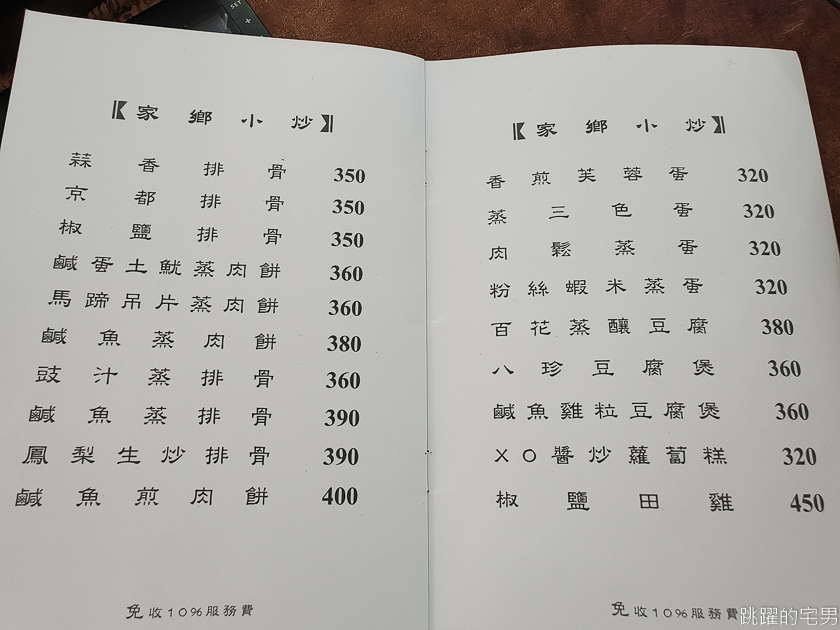 SET
【家鄉小炒】
蒜香排骨 350
京都排骨 350
椒鹽排骨 350
鹹蛋土魷蒸肉餅 360
馬蹄吊片蒸肉餅 360
鹹魚蒸肉餅 380
豉汁蒸排骨 360
鹹魚蒸排骨 390
鳳梨生炒排骨 390
鹹魚煎肉餅 400
免收10%服務費
【家鄉小炒】
香煎芙蓉蛋 320
蒸三色蛋 320
肉鬆蒸蛋 320
粉絲蝦米蒸蛋 320
百花蒸釀豆腐 380
八珍豆腐煲 360
鹹魚雞粒豆腐煲 360
XO醬炒蘿蔔糕 320
椒鹽田雞 450
免收10%服務費
跳躍的宅男